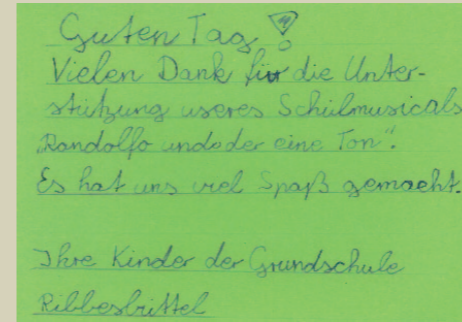 Guten Tag!
Vielen Dank für die Unter-
stützung useres Schulmusicals
Randolfo undoder eine Ton".
Es hat uns viel Spaß gemacht.
Ihre Kinder der Grundschule
Ribbesbüttel